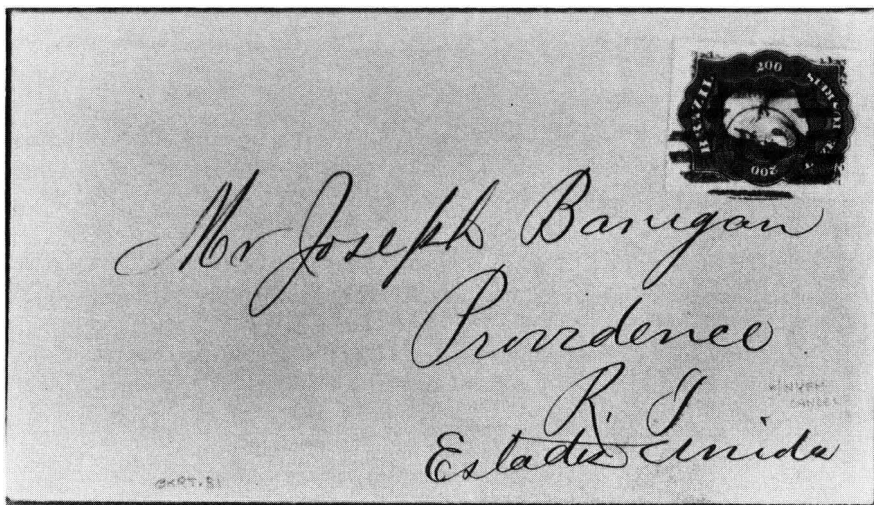 200
BRAZIL
200
Mr Joseph Banigan
Providence
R. I
Estados Unida
W/NYFM
CANCEL